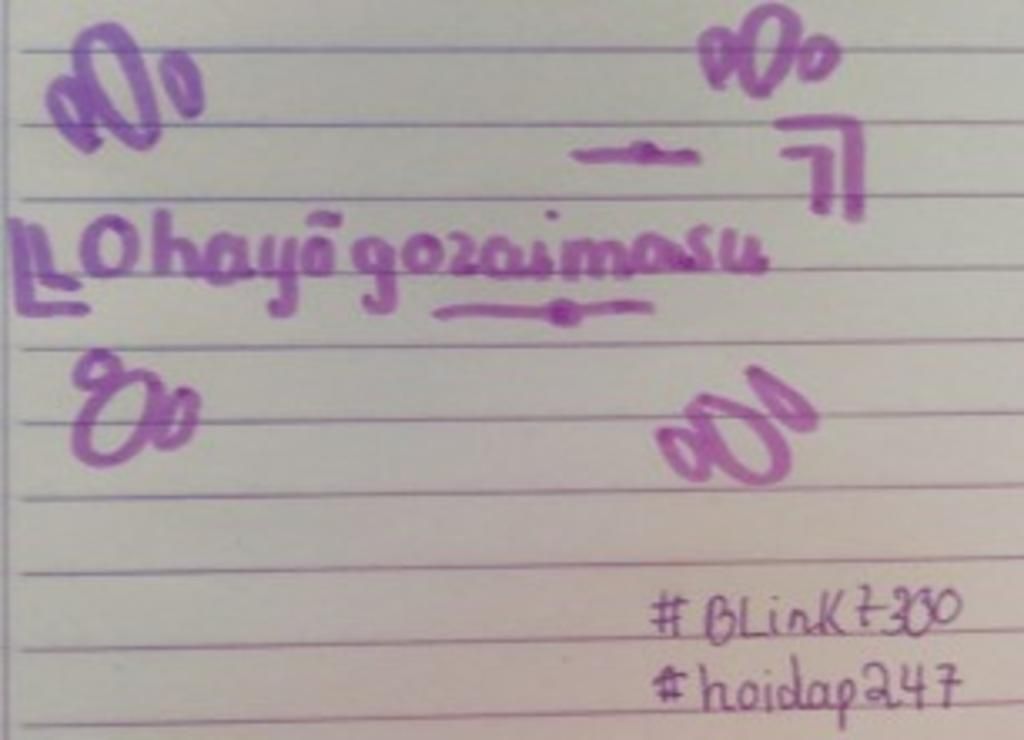 Ohayōgozaimasu
#BLinK7300
#hoidap247